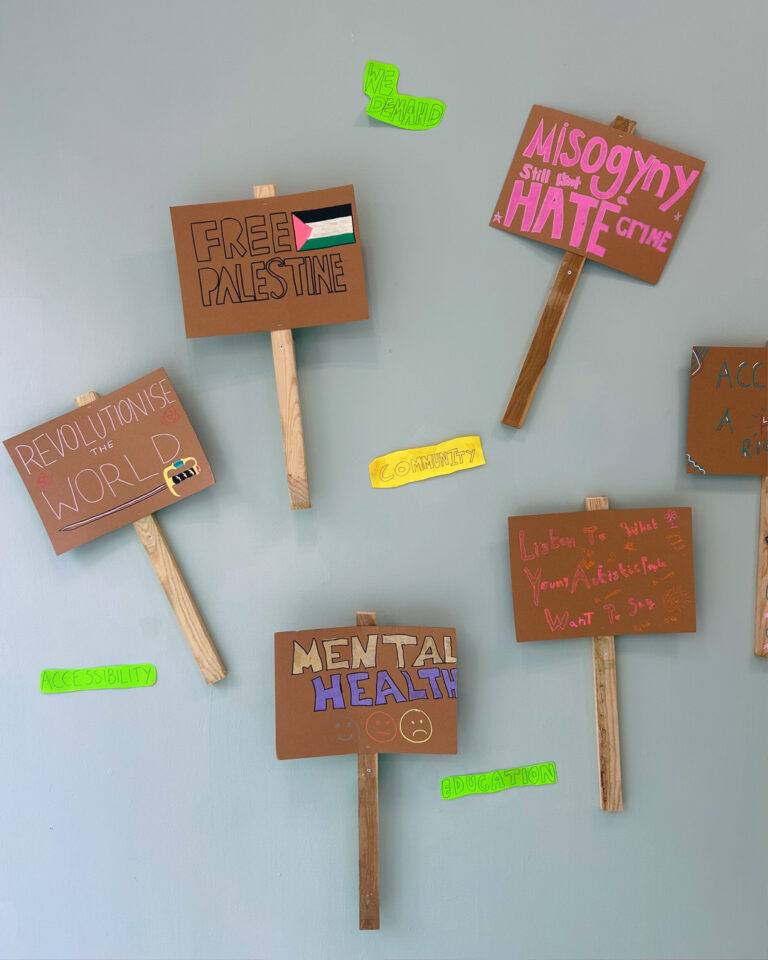 WE
DEMAND
MISOGYNY
Still isnt a
HATE CRIME
FREE
PALESTINE
REVOLUTIONISE
THE
WORLD
COMMUNITY
ACC
A
RI
Listen To What
Young Autistic People
Want To Say
ACCESSIBILITY
MENTAL
HEALTH
EDUCATION